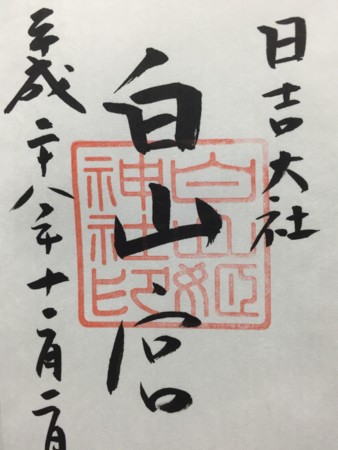 日吉大社
白山宮
白山姫神社印
平成二十八年十二月二日